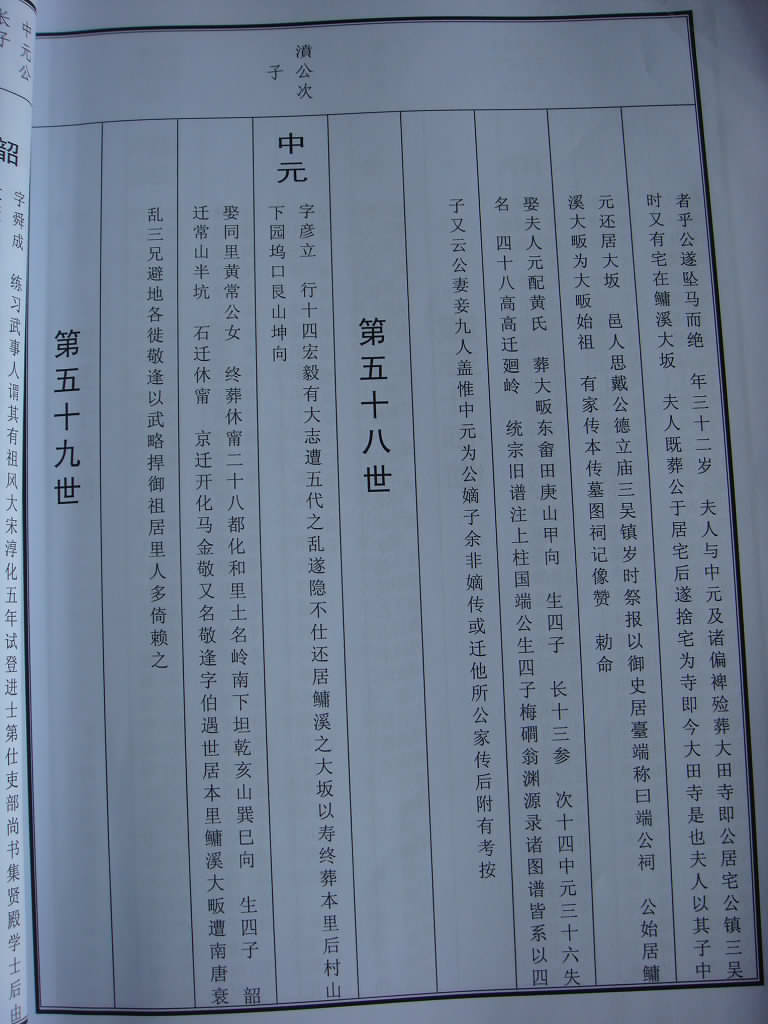 者乎公遂坠马而绝　年三十二岁　夫人与中元及诸偏裨殓葬大田寺即公居宅公镇三吴
时又有宅在鳙溪大坂　夫人既葬公于居宅后遂捨宅为寺即今大田寺是也夫人以其子中
元还居大坂　邑人思戴公德立庙三吴镇岁时祭报以御史居臺端称曰端公祠　公始居鳙
溪大畈为大畈始祖　有家传本传墓图祠记像赞　勅命
娶夫人元配黄氏　葬大畈东畲田庚山甲向　生四子　长十三参　次十四中元三十六失
名　四十八高高迁廻岭　统宗旧谱注上柱国端公生四子梅磵翁渊源录诸图谱皆系以四
子又云公妻妾九人盖惟中元为公嫡子余非嫡传或迁他所公家传后附有考按
第五十八世
濆公次
子
中元
字彦立　行十四宏毅有大志遭五代之乱遂隐不仕还居鳙溪之大坂以寿终葬本里后村山
下园坞口艮山坤向
娶同里黄常公女　终葬休甯二十八都化和里土名岭南下坦乾亥山巽巳向　生四子　韶
迁常山半坑　石迁休甯　京迁开化马金敬又名敬逢字伯遇世居本里鳙溪大畈遭南唐衰
乱三兄避地各徙敬逢以武略捍御祖居里人多倚赖之
第五十九世
中元公
长子
韶
字舜成　练习武事人谓其有祖风大宋淳化五年试登进士第仕吏部尚书集贤殿学士后由